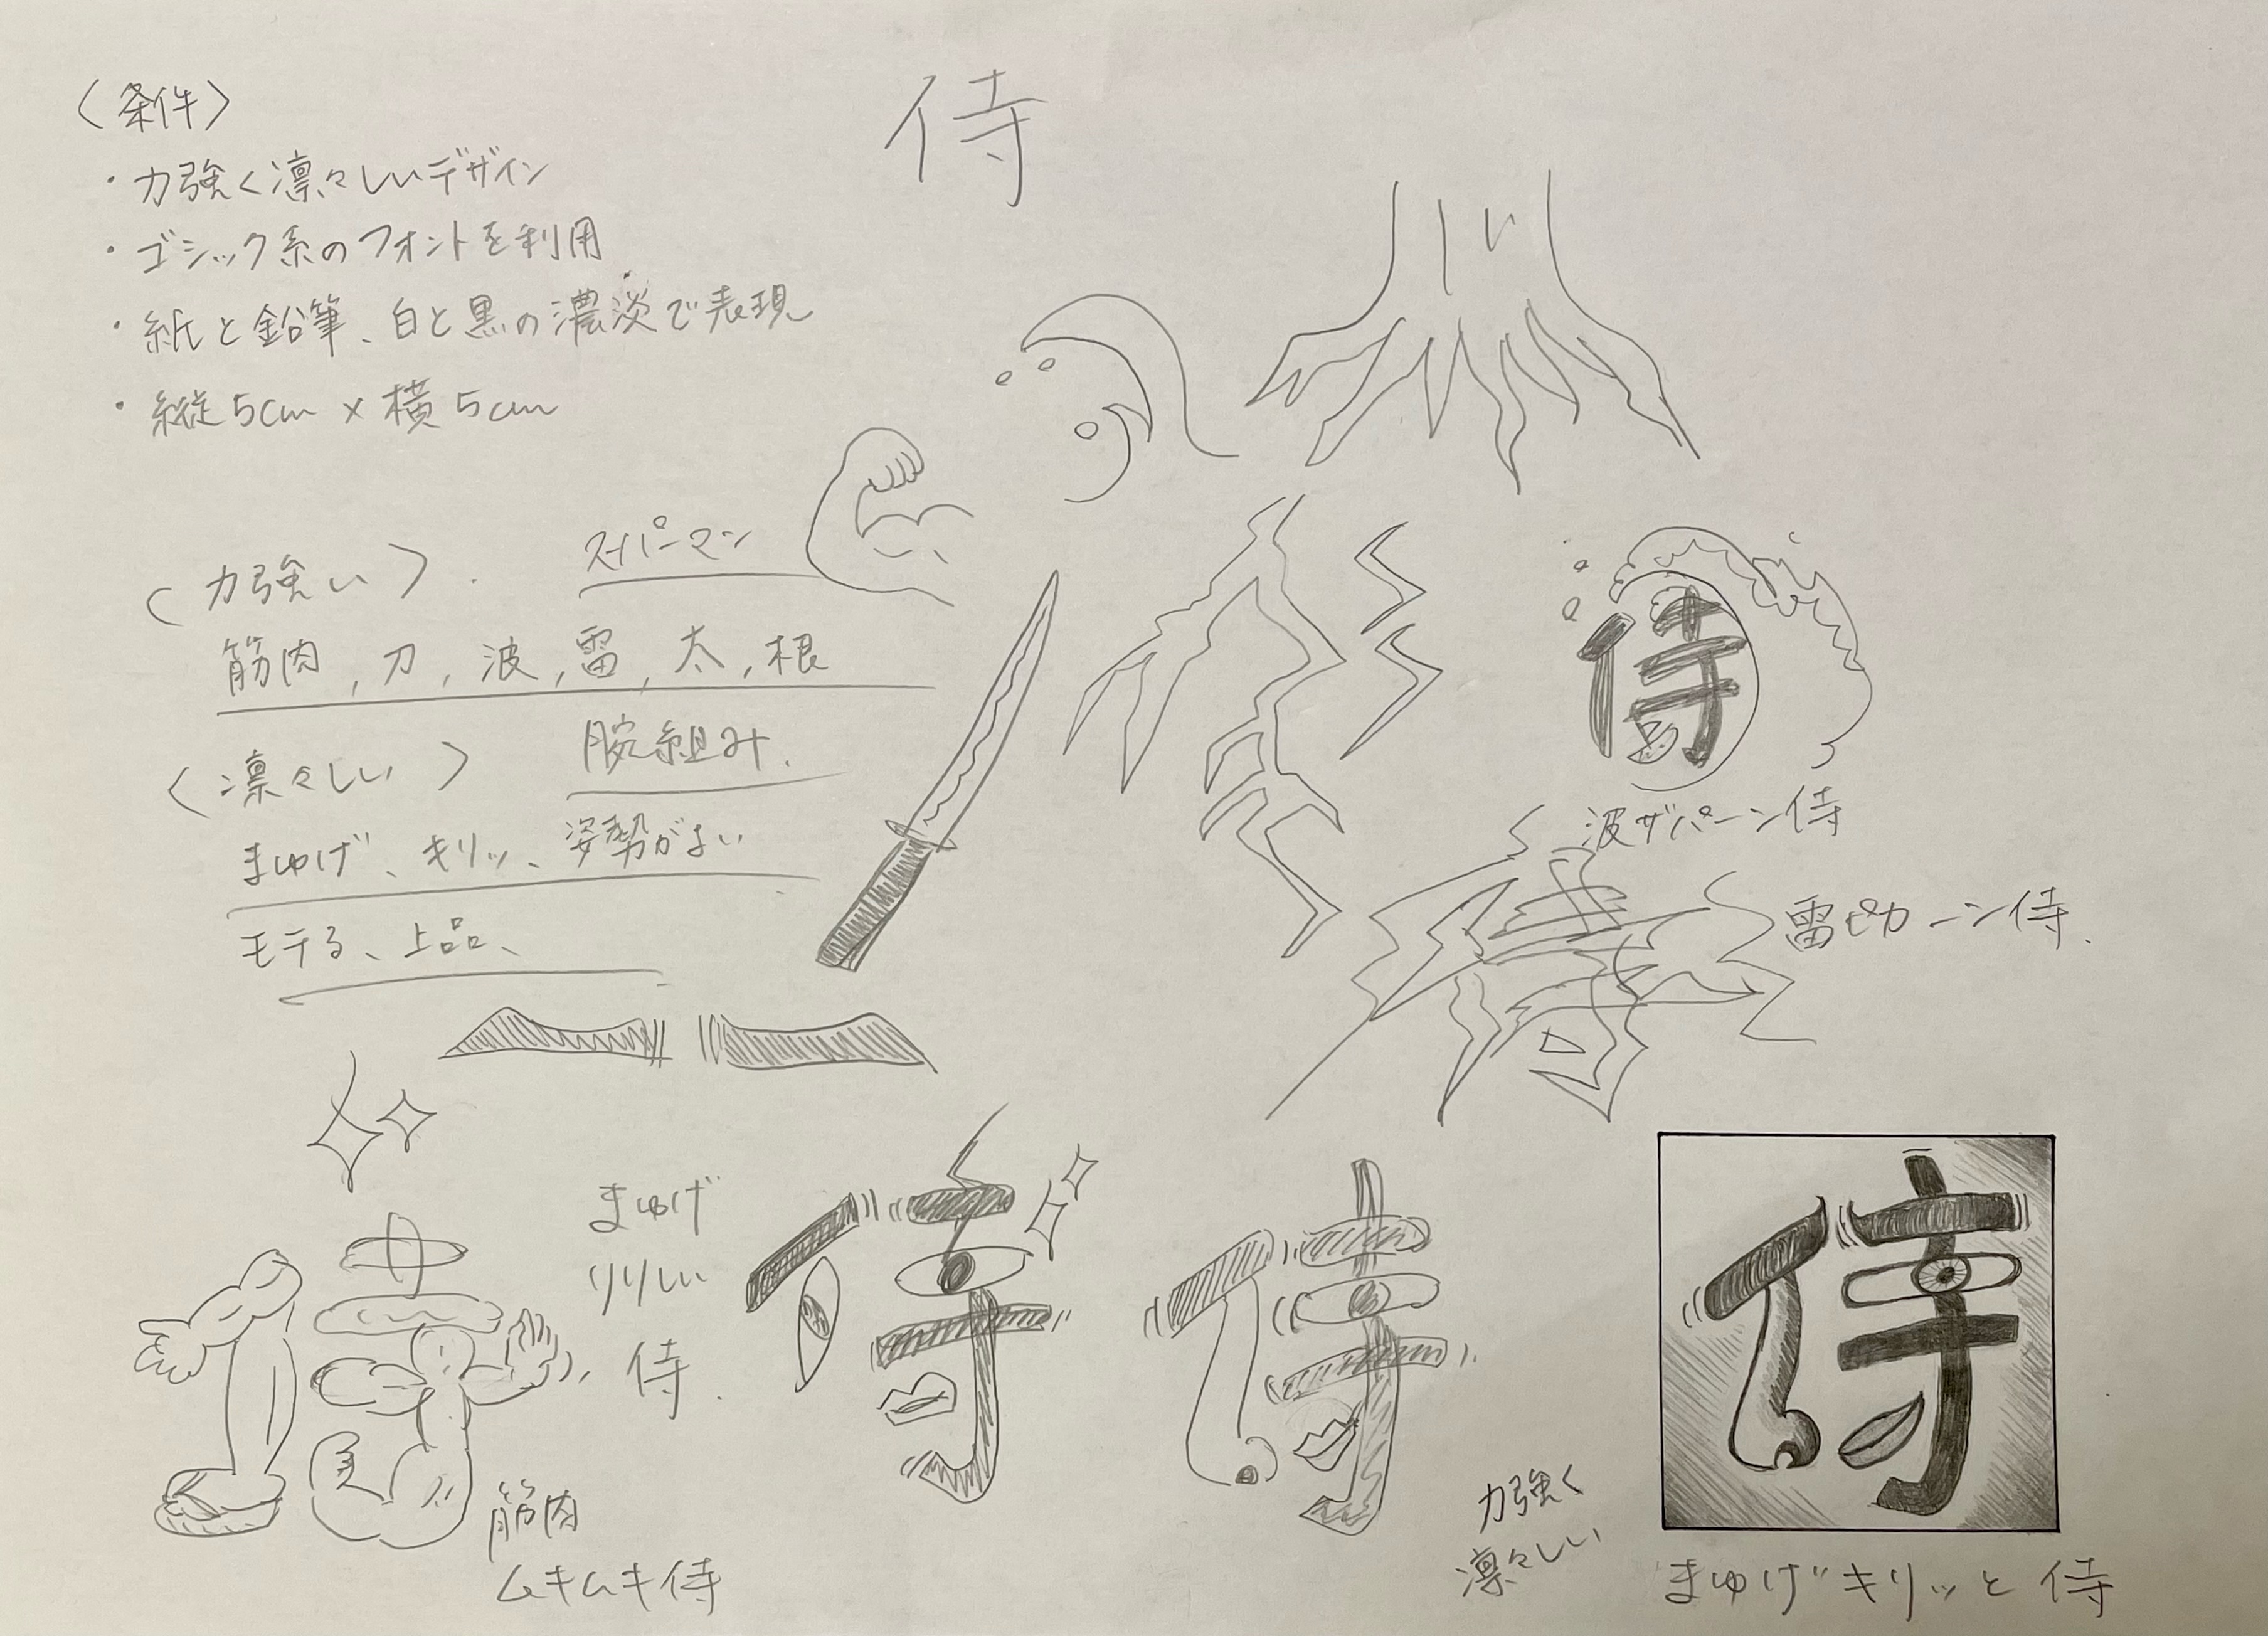 〈条件〉
・力強く凛々しいデザイン
・ゴシック系のフォントを利用
・紙と鉛筆、白と黒の濃淡で表現
・縦5cm×横5cm
侍
〈力強い〉
スーパーマン
筋肉,刀,波,雷,太,根
〈凛々しい〉
腕組み.
まゆげ、キリッ、姿勢がよい
モテる、上品、
侍
波ザパーン侍
雷ピカーン侍.
まゆげ
りりしい
侍.
筋肉
ムキムキ侍
力強く
凛々しい
侍
まゆげキリッと侍